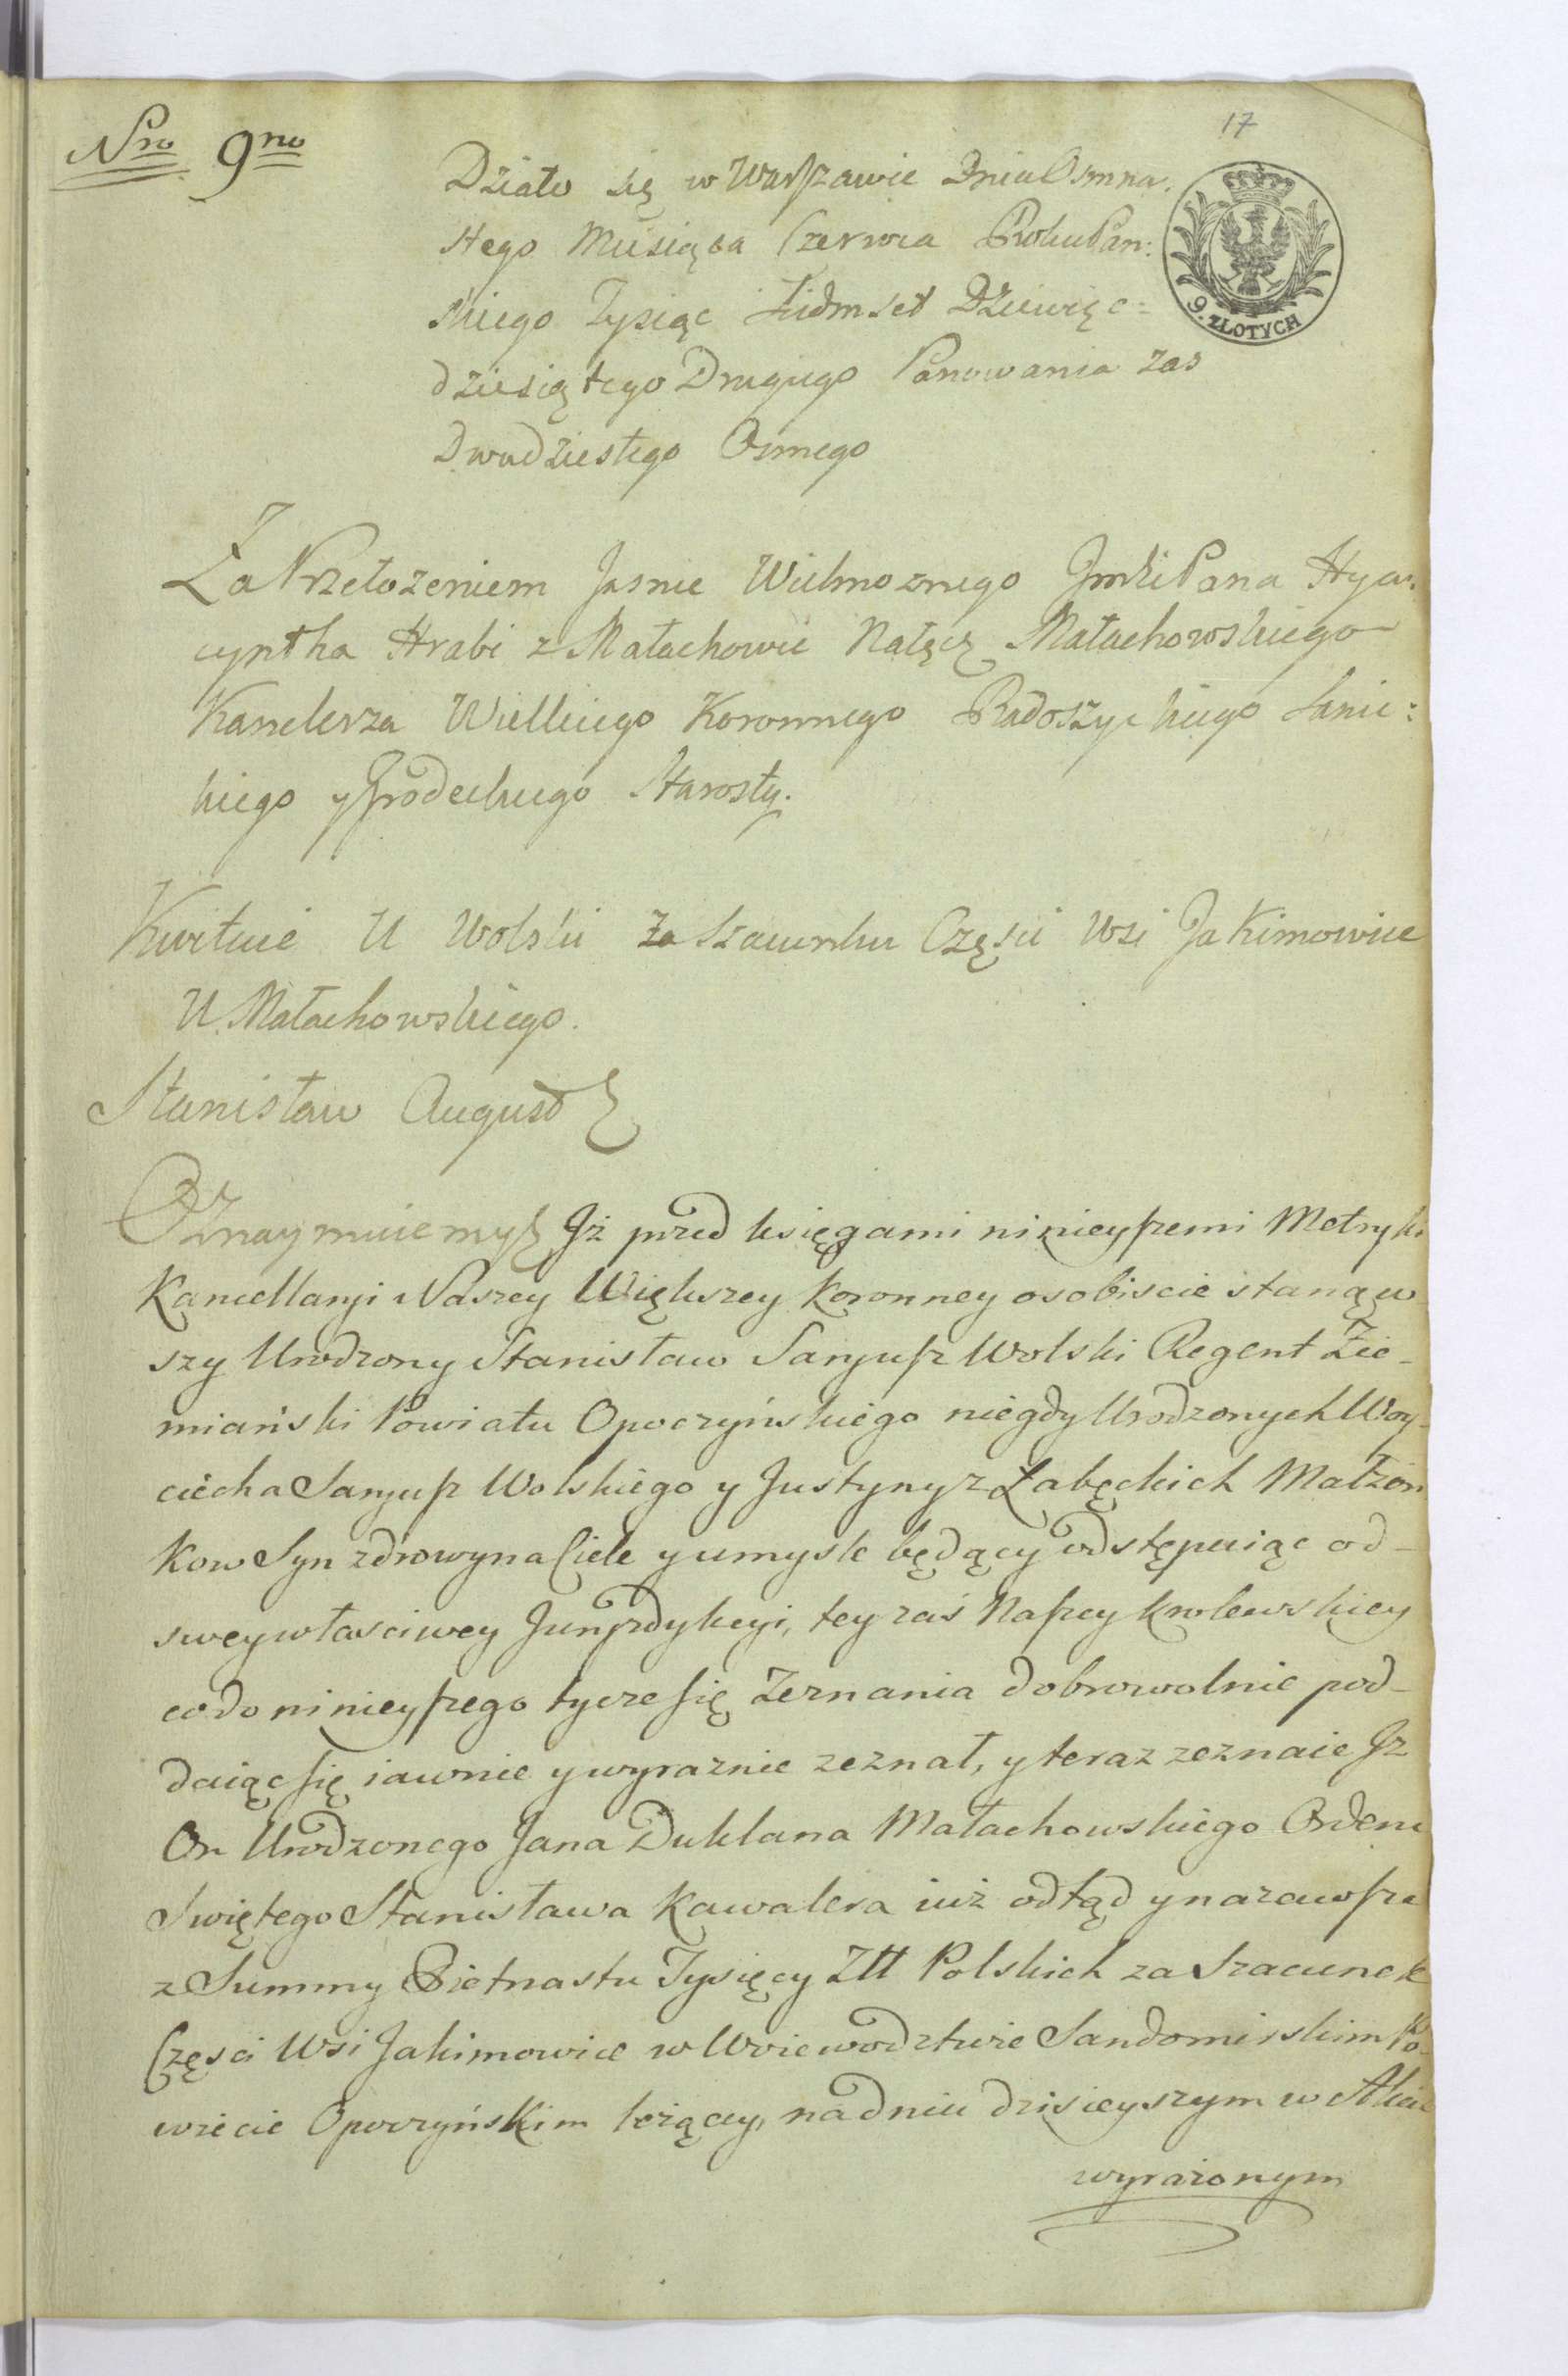 17
Nro 9no
Działo się w Warszawie Dnia Osmna.
stego Miesiąca Czerwca Roku Pań:
skiego Tysiąc Siedmset Dziewięć=
dziesiątego Drugiego Panowania zaś
Dwudziestego Osmego
9. ZŁOTYCH
Za Przełożeniem Jasnie Wielmoznego Jmći Pana Hya=
cyntha Hrabi z Małachowic Nałęcz Małachowskiego
Kanclerza Wielkiego Koronnego Radoszyckiego Sanic:
kiego y Grodeckiego Starosty.
Kwituie U Wolski za Szacunku Częsci Wsi Jakimowice
U Małachowskiego.
Stanisław August
Oznaymuiemy Jż przed księgami ninieyszemi Metryki
Kancellaryi Naszey Większey Koronney osobiscie stanąw
szy Urodzony Stanisław Saryusz Wolski Regent Zie-
miański Powiatu Opoczyńskiego niegdy Urodzonych Woy-
ciecha Saryusz Wolskiego y Justyny z Łabęckich Małżon
kow Syn zdrowy na Ciele y umysle będący odstępuiąc od-
swey własciwey Juryzdykcyi, tey zaś Naszey Krolewskiey
co do ninieyszego tycze się Zeznania dobrowolnie pod-
daiąc się iawnie y wyraznie zeznał, y teraz zeznaie Jz
On Urodzonego Jana Duklana Małachowskiego Orderu
Swiętego Stanisława Kawalera iuż odtąd y na zawsze
z Summy Pietnastu Tysięcy Złł Polskich za Szacunek
Częsci Wsi Jakimowice w Woiewodztwie Sandomirskim Po-
wiecie Opoczyńskim leżący, na dniu dzisieyszym w Akcie
wyrażonym